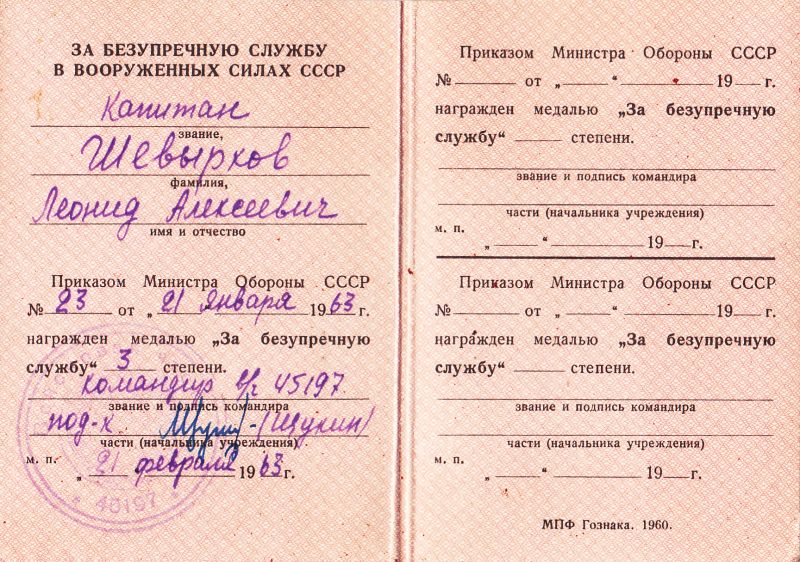 ЗА БЕЗУПРЕЧНУЮ СЛУЖБУ
В ВООРУЖЕННЫХ СИЛАХ СССР
Капитан
звание,
Шевырков
фамилия,
Леонид Алексеевич
имя и отчество
Приказом Министра Обороны СССР
№ 23 от „ 21 января 1963 г.
награжден медалью „За безупречную
службу“ 3 степени.
командир в/ч 45197
звание и подпись командира
под-к (Щукин)
части (начальника учреждения)
м. п.
„ 21 февраля 1963 г.
45197
Приказом Министра Обороны СССР
№ от „ “ 19 г.
награжден медалью „За безупречную
службу“ степени.
звание и подпись командира
части (начальника учреждения)
м. п.
„ “ 19 г.
Приказом Министра Обороны СССР
№ от „ “ 19 г.
награжден медалью „За безупречную
службу“ степени.
звание и подпись командира
части (начальника учреждения)
м. п.
„ “ 19 г.
МПФ Гознака. 1960.